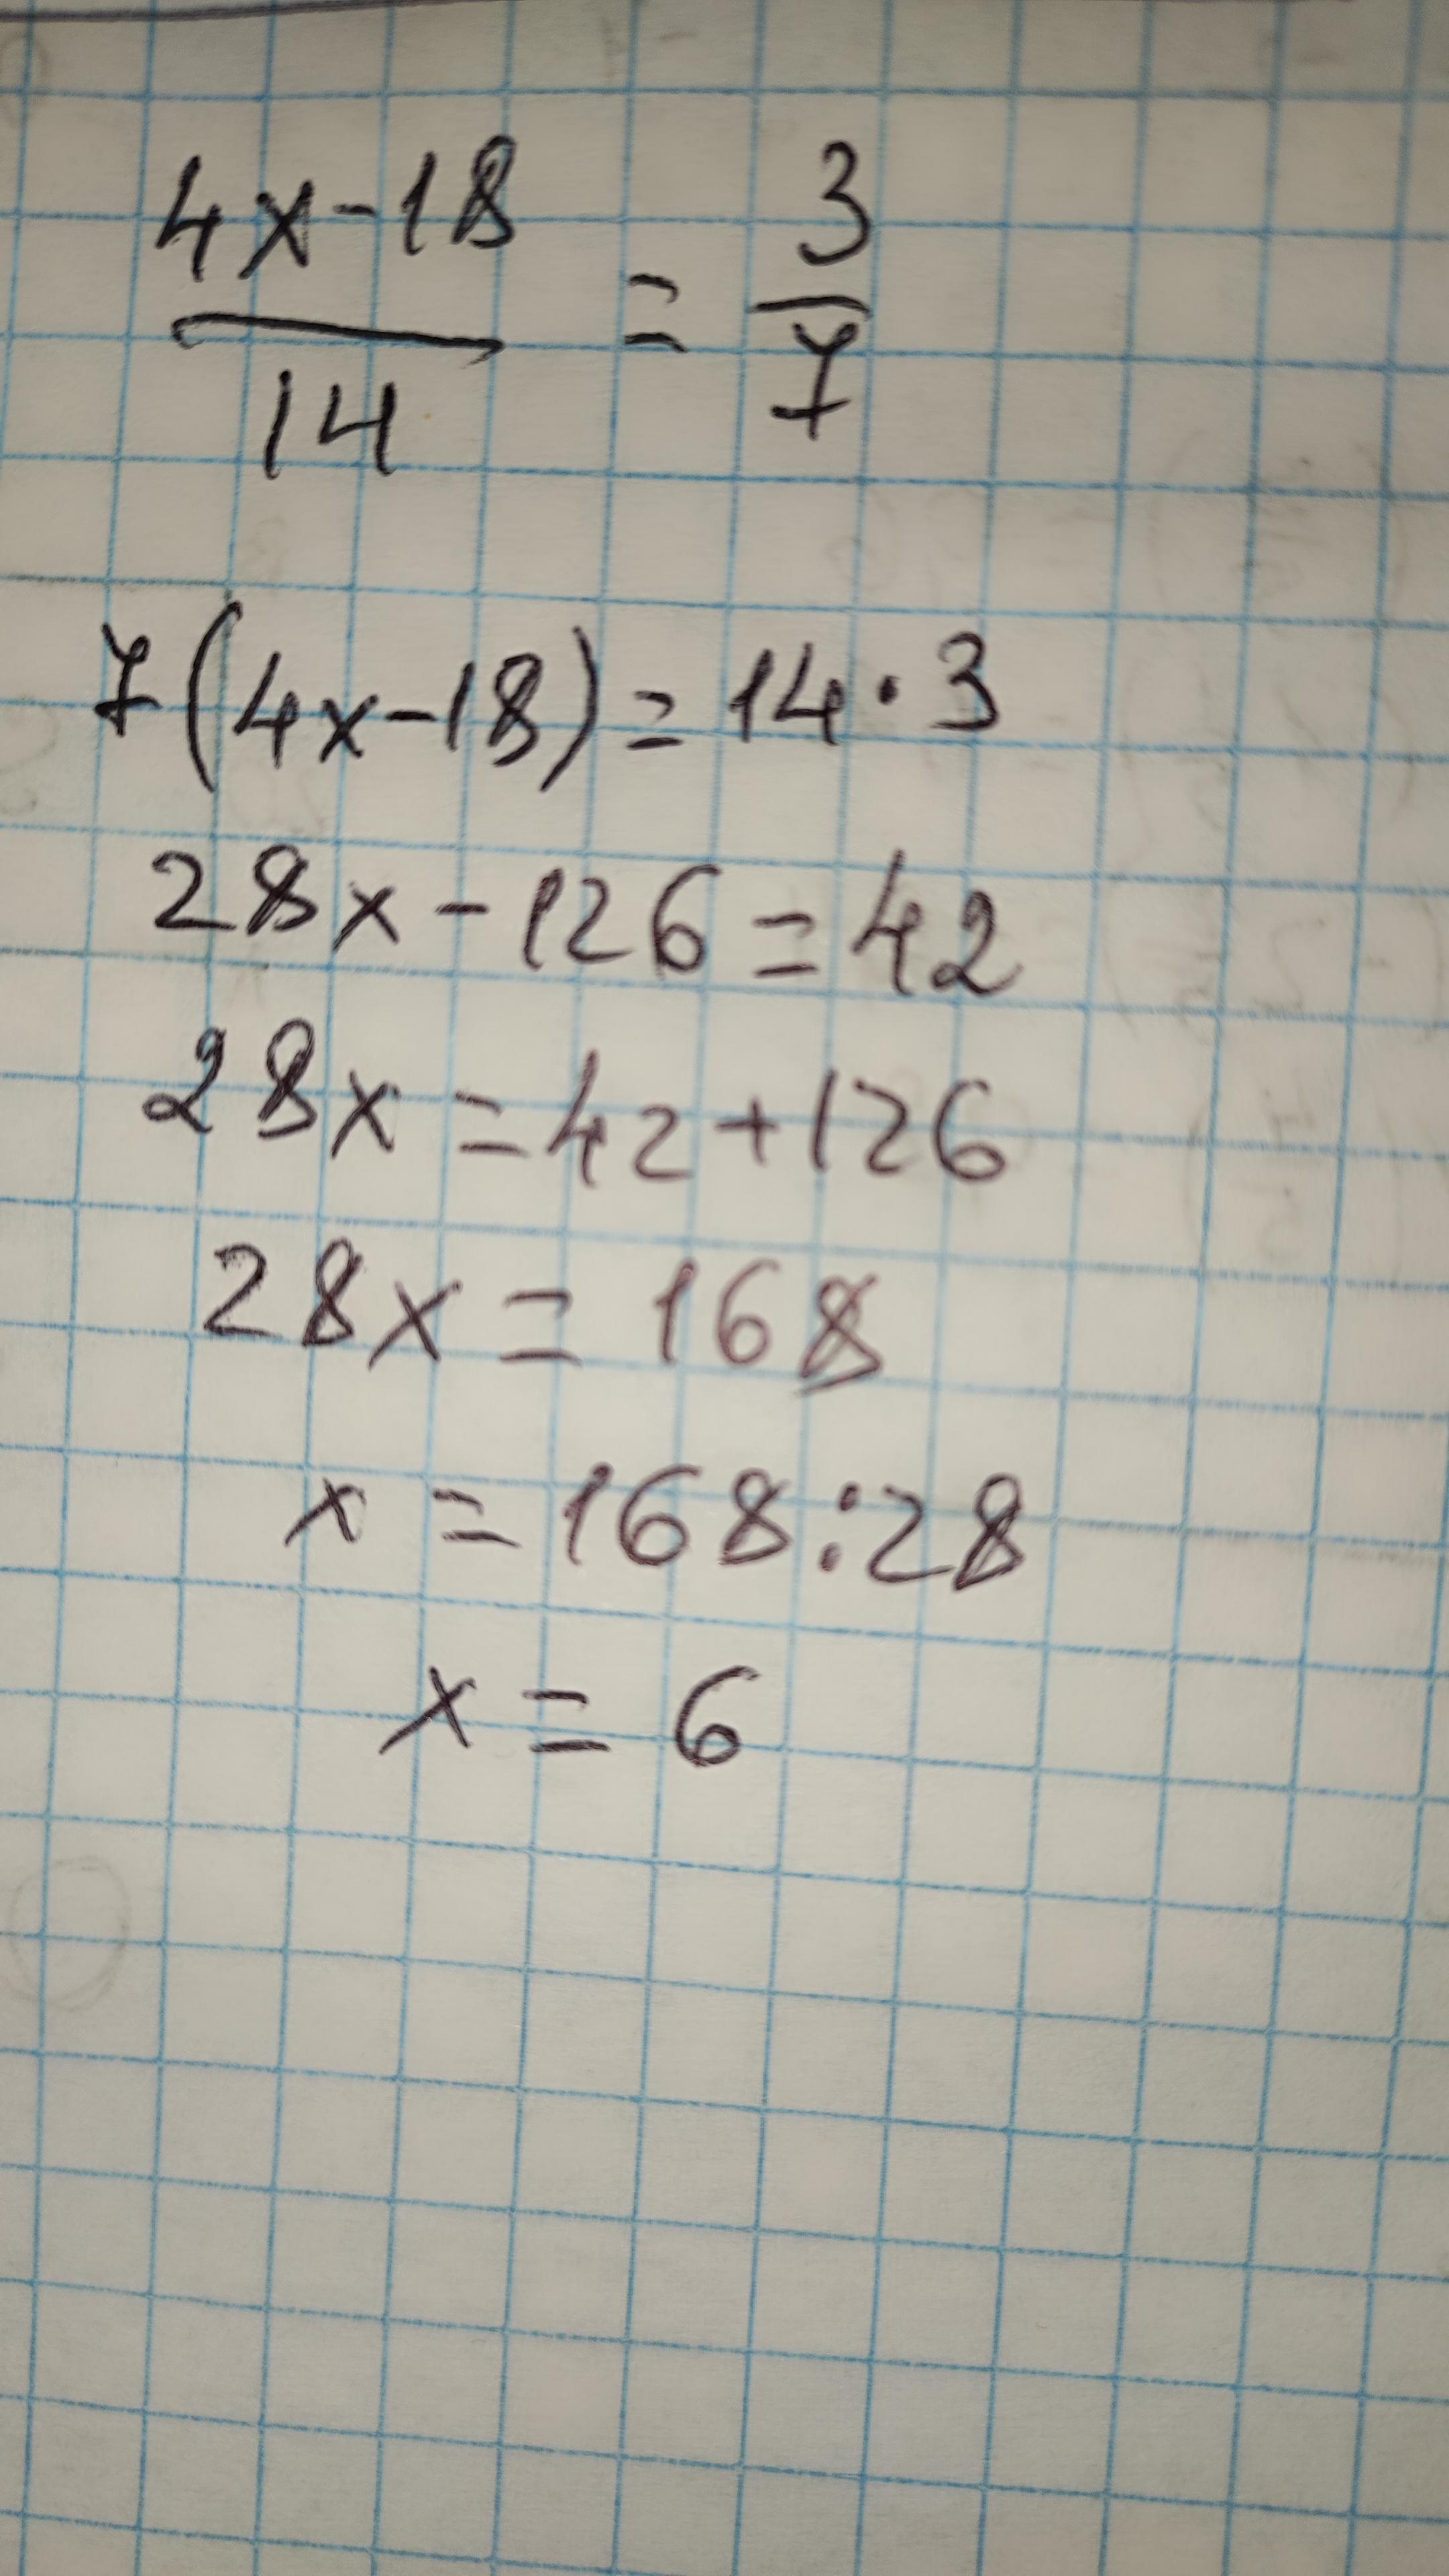 4x-18/14 = 3/7
7(4x-18)=14·3
28x-126=42
28x=42+126
28x=168
x=168:28
x=6